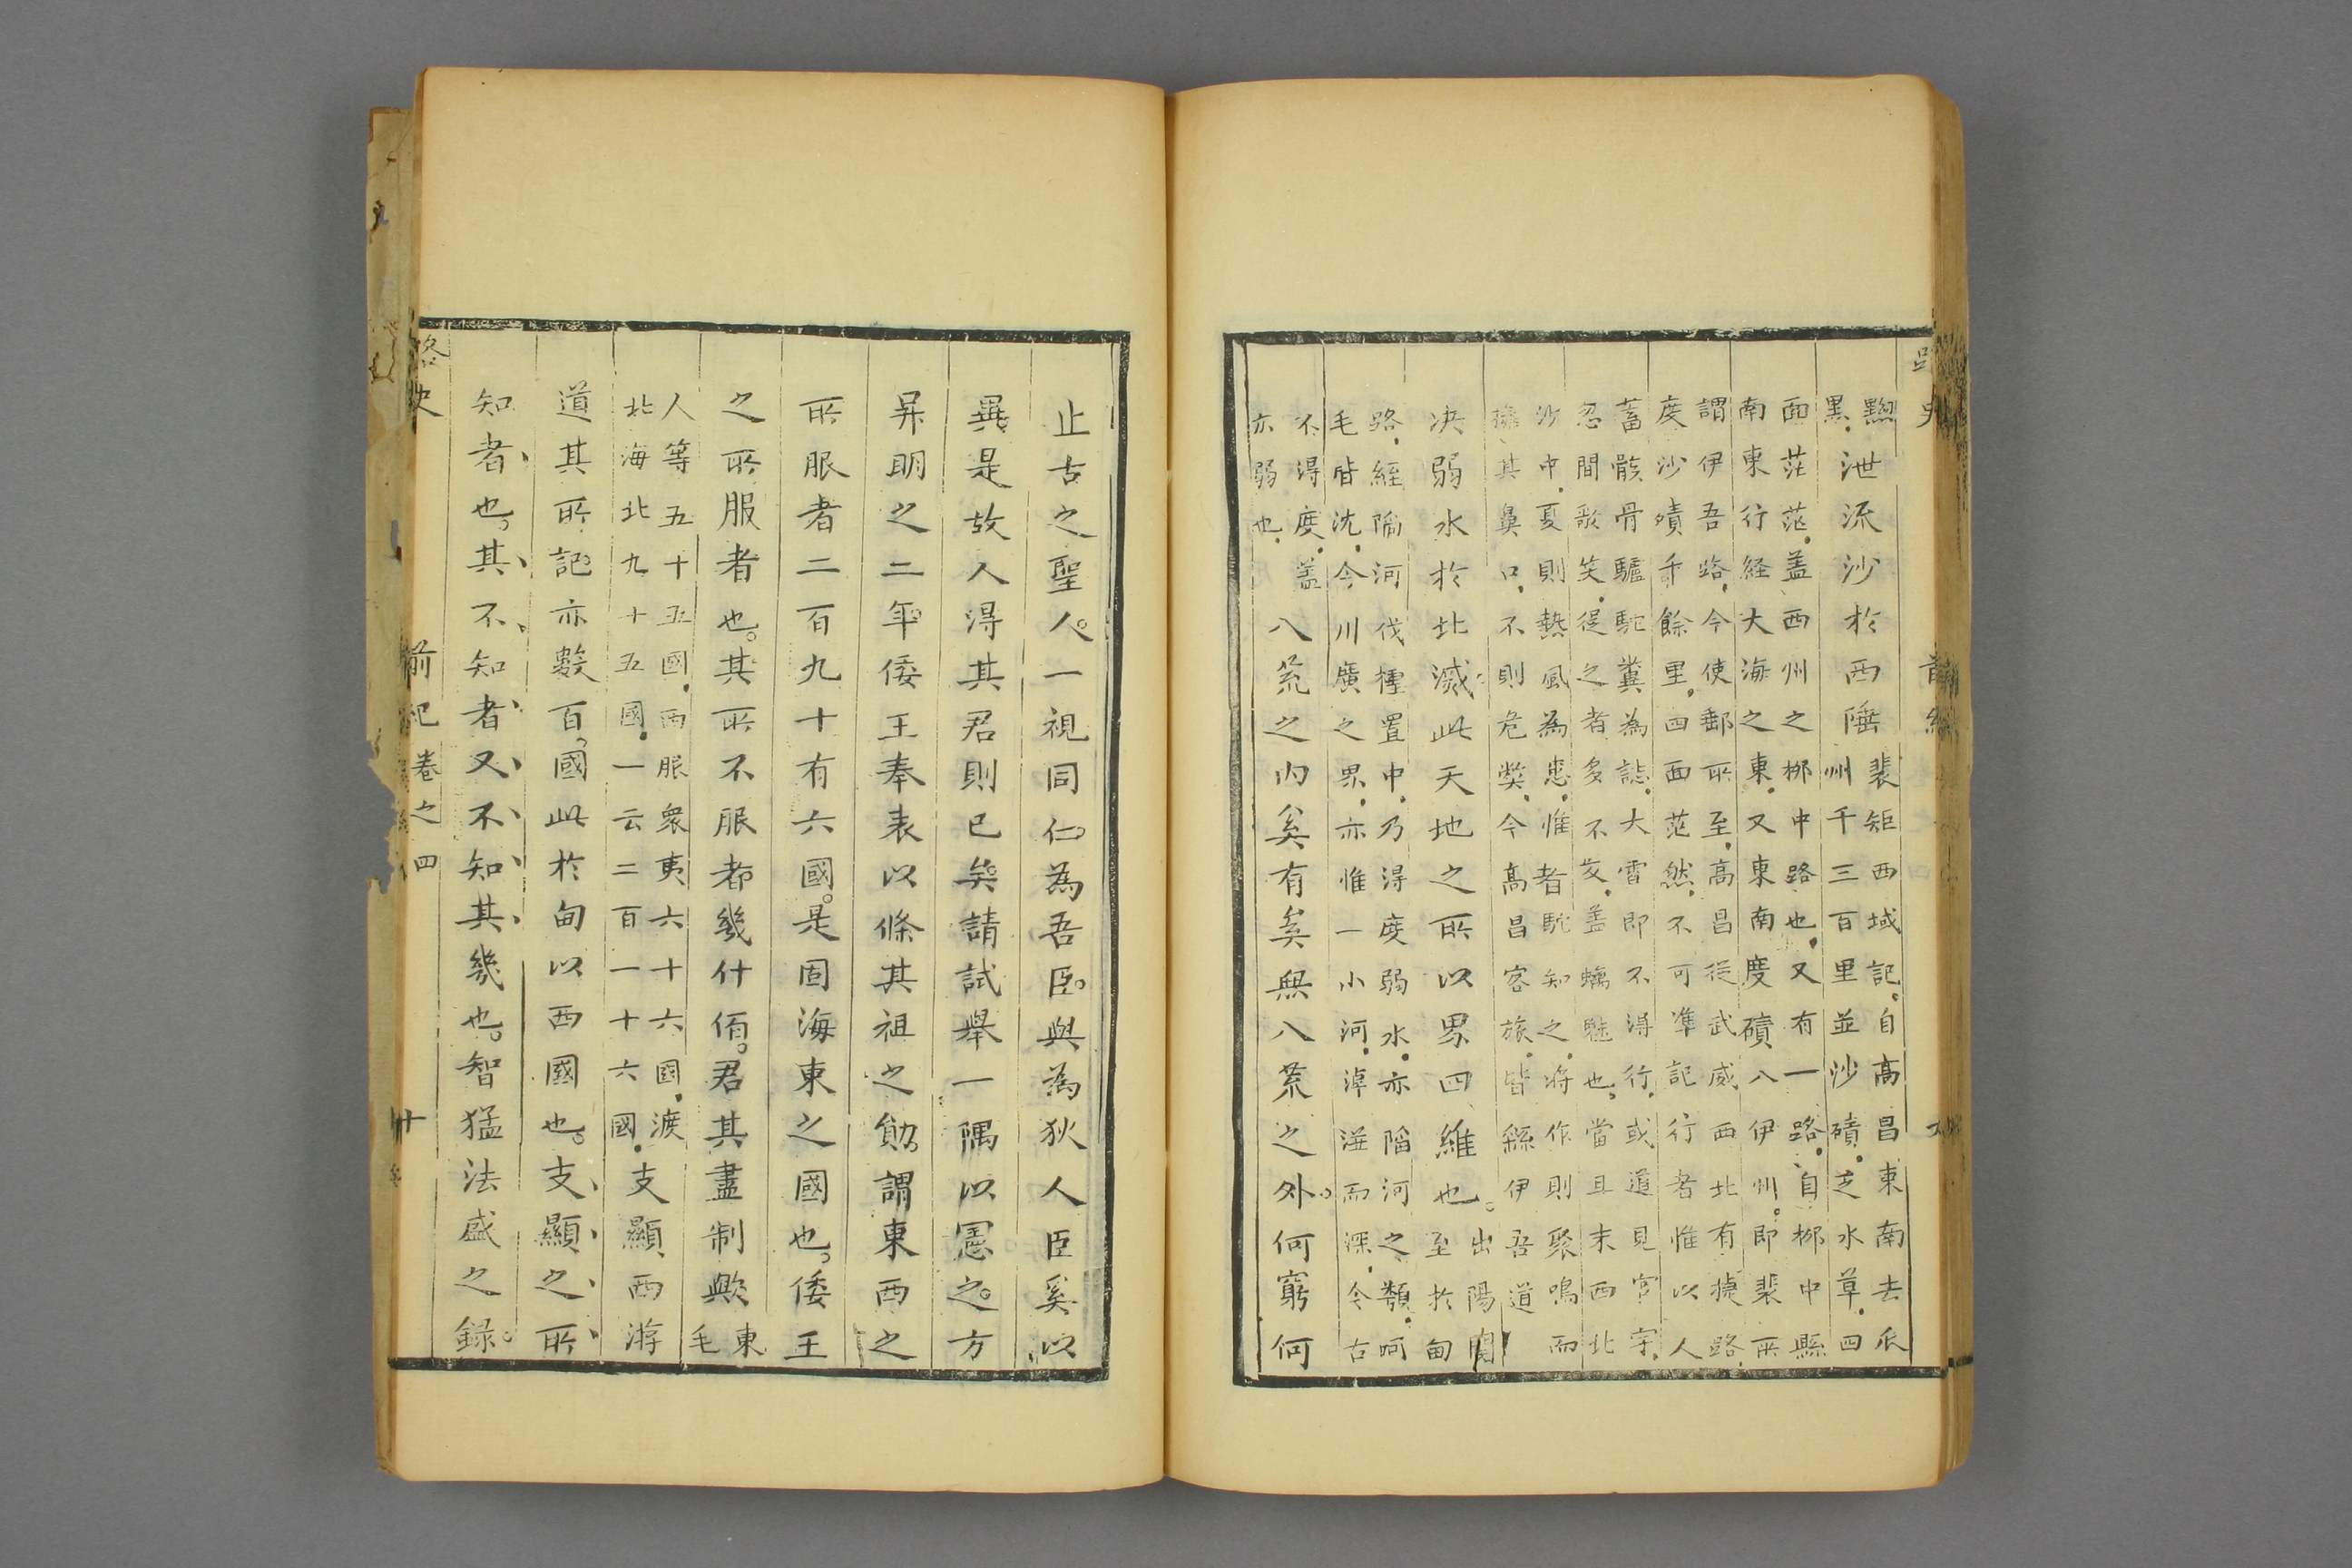 黟
黒
泄流沙於西陲
裴矩西域記自髙昌東南去瓜
州千三百里並沙磧乏水草四
面茫茫盖西州之柳中路也又有一路自柳中縣
南東行経大海之東又東南度磧八伊州即裴所
謂伊吾路今使郵所至高昌從武威西北有捷路
度沙磧千餘里四面茫然不可凖記行者惟以人
蓄骸骨驢駝糞為誌大雪即不得行或道見宫宇
忽間歌笑從之者多不亥盖螭魅也當且末西北
沙中夏則熱風為患惟耆駝知之将作則聚鳴而
擁其鼻口不則危獘今髙昌客旅皆繇伊吾道
决弱水於北滅此天地之所以界四維也
出陽関
至於甸
路經隃河伐檉置中乃得度弱水亦陷河之類呵
毛皆沈今川廣之界亦惟一小河淖湴而深今古
不得度盖
亦弱也
八荒之内奚有奚無八荒之外何窮何
止古之聖人一視同仁為吾臣與為狄人臣奚以
異是故人得其君則已矣請試舉一隅以慁之方
昇明之二年倭王奉表以條其祖之勛謂東西之
所服者二百九十有六國是固海東之國也倭王
之所服者也其所不服者都幾什佰君其盡制歟
東
毛
人等五十五國西服衆夷六十六國渡
北海北九十五國一云二百一十六國
支顯西游
道其所記亦數百國此於甸以西國也支顯之所
知者也其不知者又不知其幾也智猛法盛之録
路史　前紀卷之四　十